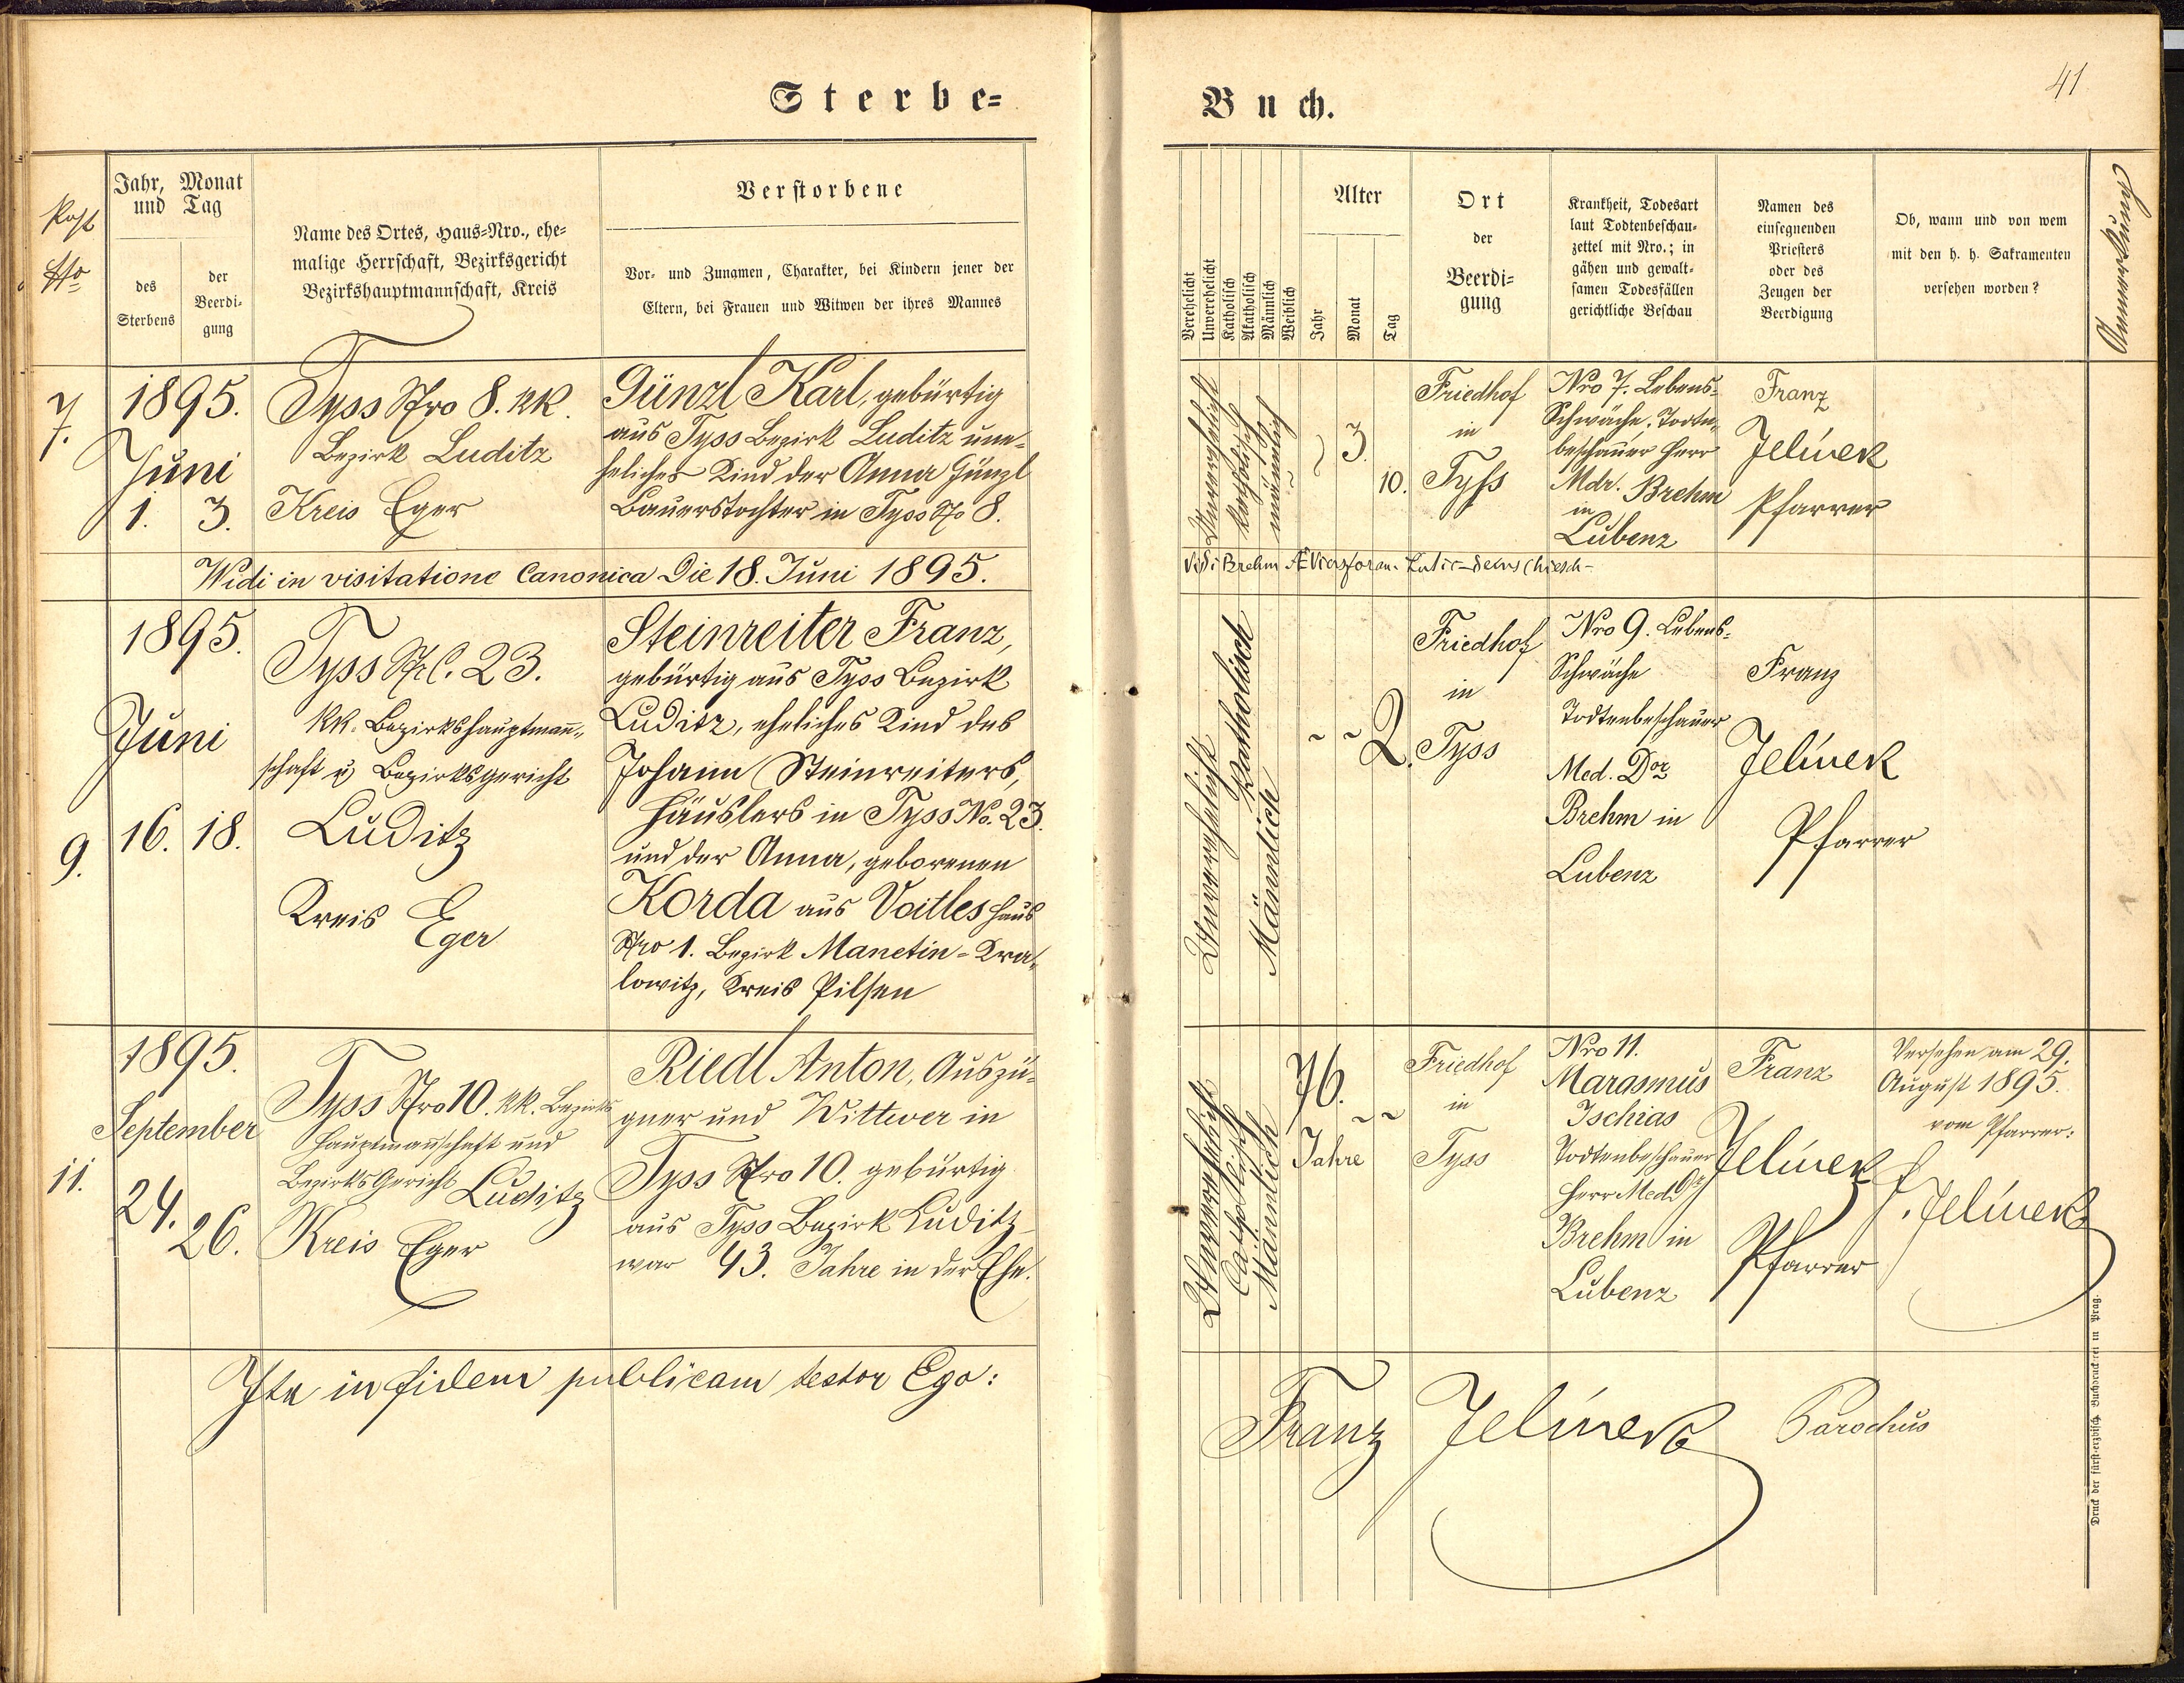 Sterbe=
Post
Nro
Jahr, Monat
und Tag
des
Sterbens
der
Beerdi-
gung
Name des Ortes, Haus-Nro., ehe-
malige Herrschaft, Bezirksgericht
Bezirkshauptmannschaft, Kreis
Verstorbene
Vor- und Zunamen, Charakter, bei Kindern jener der
Eltern, bei Frauen und Witwen der ihres Mannes
7.
1895.
Juni
1. 3.
Tyss Nro 8. kk.
Bezirk Luditz
Kreis Eger
Günzl Karl, gebürtig
aus Tyss Bezirk Luditz une-
heliches Kind der Anna Günzl
Bauerstochter in Tyss No 8.
Widi in visitatione Canonica Die 18. Juni 1895.
9.
1895.
Juni
16. 18.
Tyss 23.
kk. Bezirkshauptmann-
schaft u Bezirksgericht
Luditz
Kreis Eger
Steinreiter Franz,
gebürtig aus Tyss Bezirk
Luditz, eheliches Kind des
Johann Steinreiters,
Häuslers in Tyss No. 23.
und der Anna, geborenen
Korda aus Voitles Haus
Nro 1. Bezirk Manetin-Kra-
lowitz, Kreis Pilsen
11.
1895.
September
24.
26.
Tyss Nro 10. kk. Bezirks
Hauptmannschaft und
Bezirks Gericht Luditz
Kreis Eger
Riedl Anton, Auszü-
gner und Wittwer in
Tyss Nro 10. gebürtig
aus Tyss Bezirk Luditz
war 43. Jahre in der Ehe.
Ita in fidem publicam testor Ego:
Buch.
41
Verehelicht
Unverehelicht
Katholisch
Akatholisch
Männlich
Weiblich
Alter
Jahr
Monat
Tag
Ort
der
Beerdi-
gung
Krankheit, Todesart
laut Todtenbeschau-
zettel mit Nro.; in
gähen und gewalt-
samen Todesfällen
gerichtliche Beschau
Namen des
einsegnenden
Priesters
oder des
Zeugen der
Beerdigung
Ob, wann und von wem
mit den h. h. Sakramenten
versehen worden?
Anmerkung
Unverehelicht
katholisch
männlich
3.
10.
Friedhof
in
Tyss
Nro 7. Lebens-
Schwäche. Todten-
beschauer Herr
Mdr. Brehm
in
Lubenz
Franz
Jelinek
Pfarrer
Vidi Brehm
Unverehelicht
Katholisch
Männlich
2.
Friedhof
in
Tyss
Nro 9. Lebens-
Schwäche
Todtenbeschauer
Med. Dor
Brehm in
Lubenz
Franz
Jelinek
Pfarrer
Unverehelicht
Catholisch
Männlich
76.
Jahre
Friedhof
in
Tyss
Nro 11.
Marasmus
Ischias
Todtenbeschauer
Herr Med Dr
Brehm in
Lubenz
Franz
Jelinek
Pfarrer
Versehen am 29.
August 1895.
vom Pfarrer:
F. Jelinek
Franz Jelinek Parochus
Druck der fürst-erzbisch. Buchdruckerei in Prag.